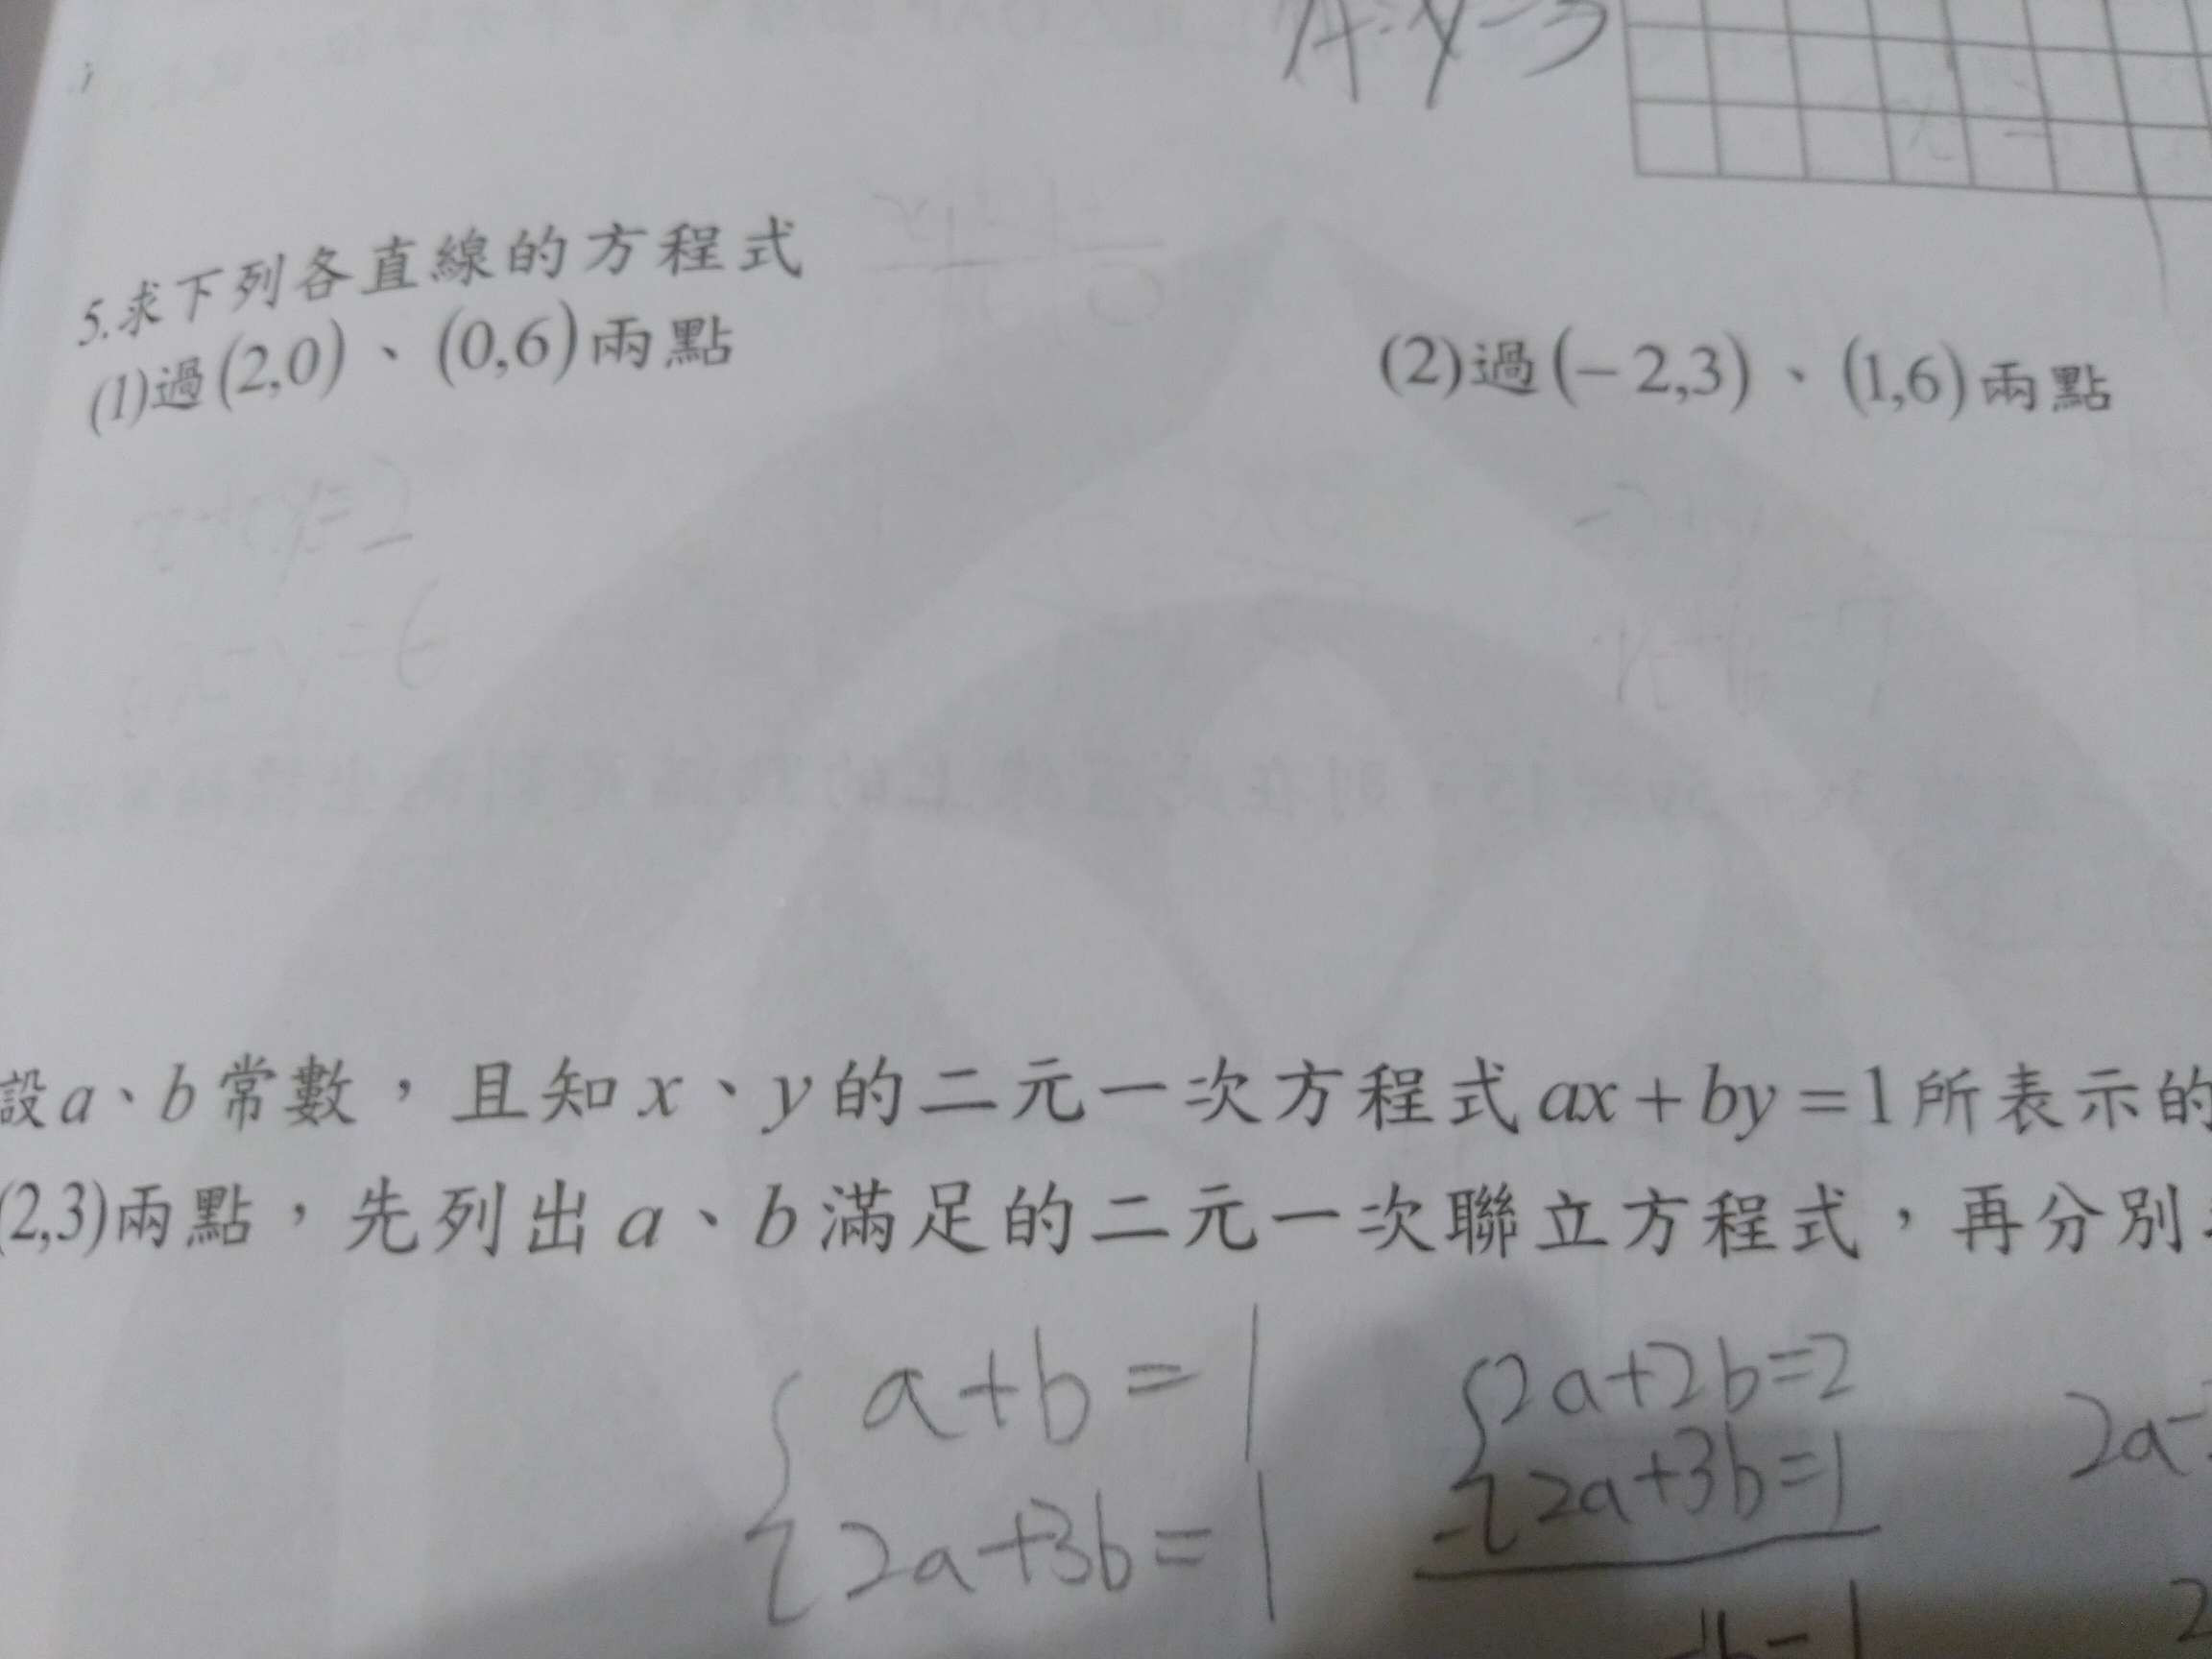 5.求下列各直線的方程式
(1)過(2,0)、(0,6)兩點
(2)過(−2,3)、(1,6)兩點
設a、b常數，且知x、y的二元一次方程式ax+by=1所表示的
(2,3)兩點，先列出a、b滿足的二元一次聯立方程式，再分別
a+b=1
2a+2b=2
2a+3b=1
2a+3b=1